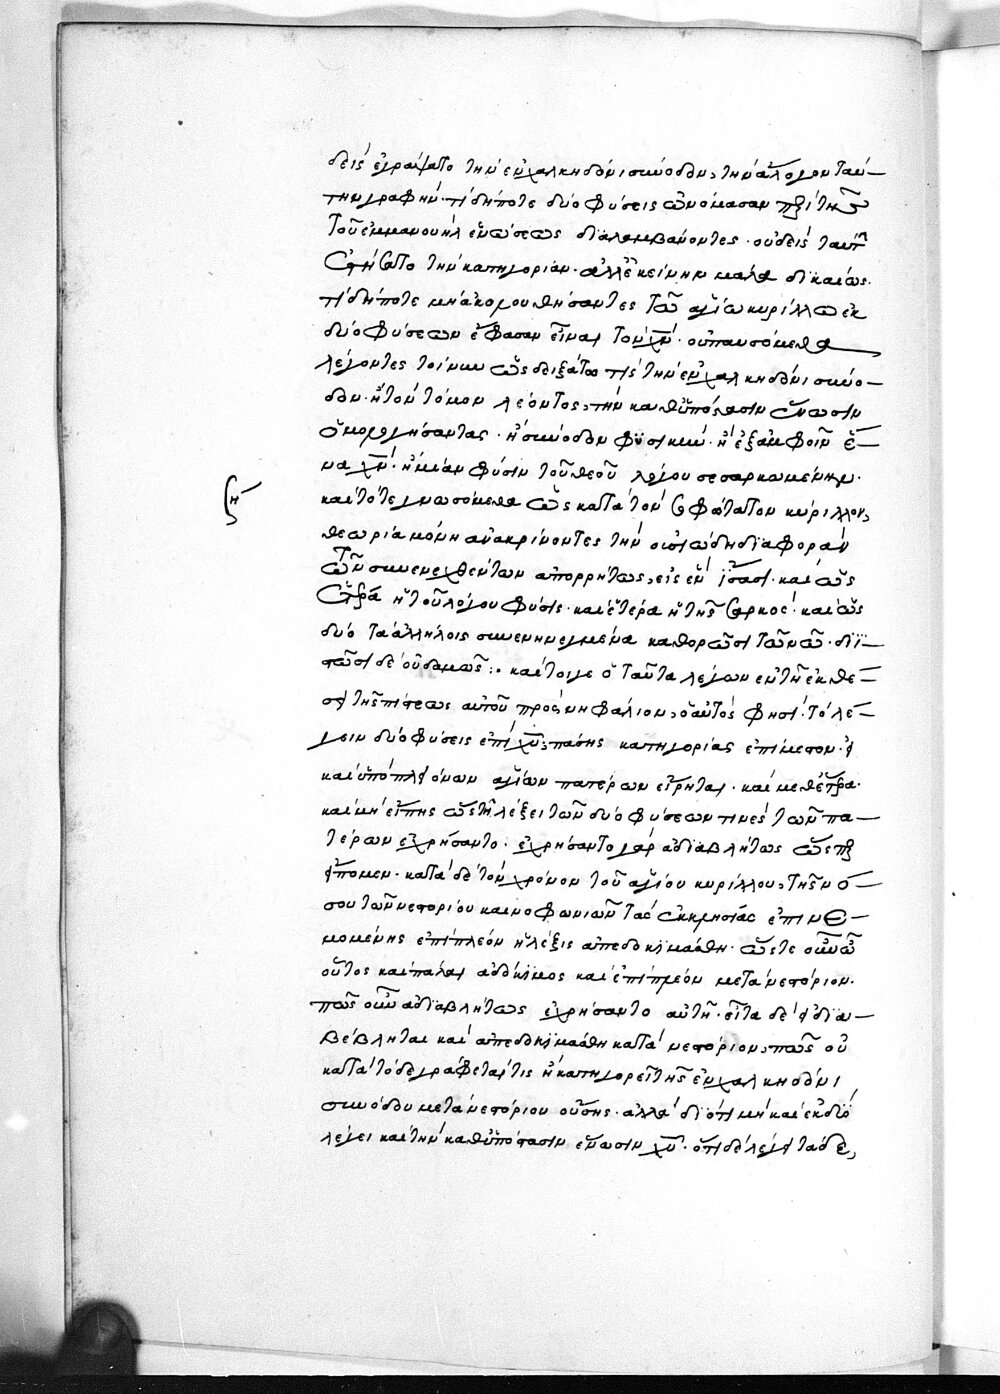 δεὶς ἐγράψατο τὴν ἐν χαλκηδόνι σύνοδον, τὴν ἄλογον ταύ-
την γραφήν. τί δήποτε δύο φύσεις ὠνόμασαν περὶ τῆς
τοῦ ἐμμανουὴλ ἑνώσεως διαλαμβάνοντες. οὐδεὶς ταύτην
ἐστήσατο τὴν κατηγορίαν. ἀλλ' ἐκείνην μάλα δικαίως.
τί δήποτε μὴ ἀκολουθήσαντες τῶ ἁγίω κυρίλλω ἐκ
δύο φύσεων ἔφασαν εἶναι τὸν χν. οὐ παυσόμεθα
λέγοντες τοίνυν ὡς δειξάτω τίς τὴν ἐν χαλκηδόνι σύνο-
δον. ἢ τὸν τόμον λέοντος, τὴν καθ' ὑπόστασιν ἕνωσιν
ὁμολογήσαντας. ἢ σύνοδον φυσικήν. ἢ ἐξ ἀμφοῖν ἕ-
να χν. ἢ μίαν φύσιν τοῦ θεοῦ λόγου σεσαρκωμένην.
καὶ τότε γνωσόμεθα ὡς κατὰ τὸν σοφώτατον κύριλλον,
θεωρία μόνη ἀνακρίνοντες τὴν οὐσιώδη διαφορὰν
τῶν συνενεχθέντων ἀπορρήτως, εἰς ἓν ἴσασι. καὶ ὡς
ἑτέρα ἡ τοῦ λόγου φύσις. καὶ ἑτέρα ἡ τῆς σαρκός. καὶ ὡς
δύο τὰ ἀλλήλοις συνενηνεγμένα καθορῶσι τῶ νῶ. διϊ-
στῶσι δὲ οὐδαμῶς :. καίτοιγε ὁ ταῦτα λέγων ἐν τῆ ἐκθέ-
σει τῆς πίστεως αὐτοῦ πρὸς νηφάλιον, ὁ αὐτὸς φησί. τὸ λέ-
γειν δύο φύσεις ἐπὶ χυ, πάσης κατηγορίας ἐπίμεστον. εἰ
καὶ ὑπὸ πλειόνων ἁγίων πατέρων εἴρηται. καὶ μεθ' ἕτερα.
καὶ μὴ εἴπης ὡς τῆ λέξει τῶν δύο φύσεων τινὲς τῶν πα-
τέρων ἐχρήσαντο. ἐχρήσαντο γὰρ ἀδιαβλήτως ὥσπερ
εἴπομεν. κατὰ δὲ τὸν χρόνον τοῦ ἁγίου κυρίλλου, τῆς νό-
σου τῶν νεστορίου καινοφωνιῶν τὰς ἐκκλησίας ἐπινε-
μομένης ἐπιπλέον ἡ λέξις ἀπεδοκιμάσθη. ὥστε οὖν
οὗτος καὶ πάλαι ἀδόκιμος καὶ ἐπιπλέον μετὰ νεστόριον.
πῶς οὖν ἀδιαβλήτως ἐχρήσαντο αὐτῆ. εἶτα δὲ εἰ δια-
βέβληται καὶ ἀπεδοκιμάσθη κατὰ νεστόριον, πῶς οὐ
κατὰ τόδε γράφεταί τις ἢ κατηγορεῖ τῆς ἐν χαλκηδόνι
συνόδου μετὰ νεστόριον οὔσης. ἀλλὰ διότι μὴ καὶ ἐκ δύο
λέγει καὶ τὴν καθ' ὑπόστασιν ἕνωσιν χυ. ὅτι δὲ λέγει τάδε,